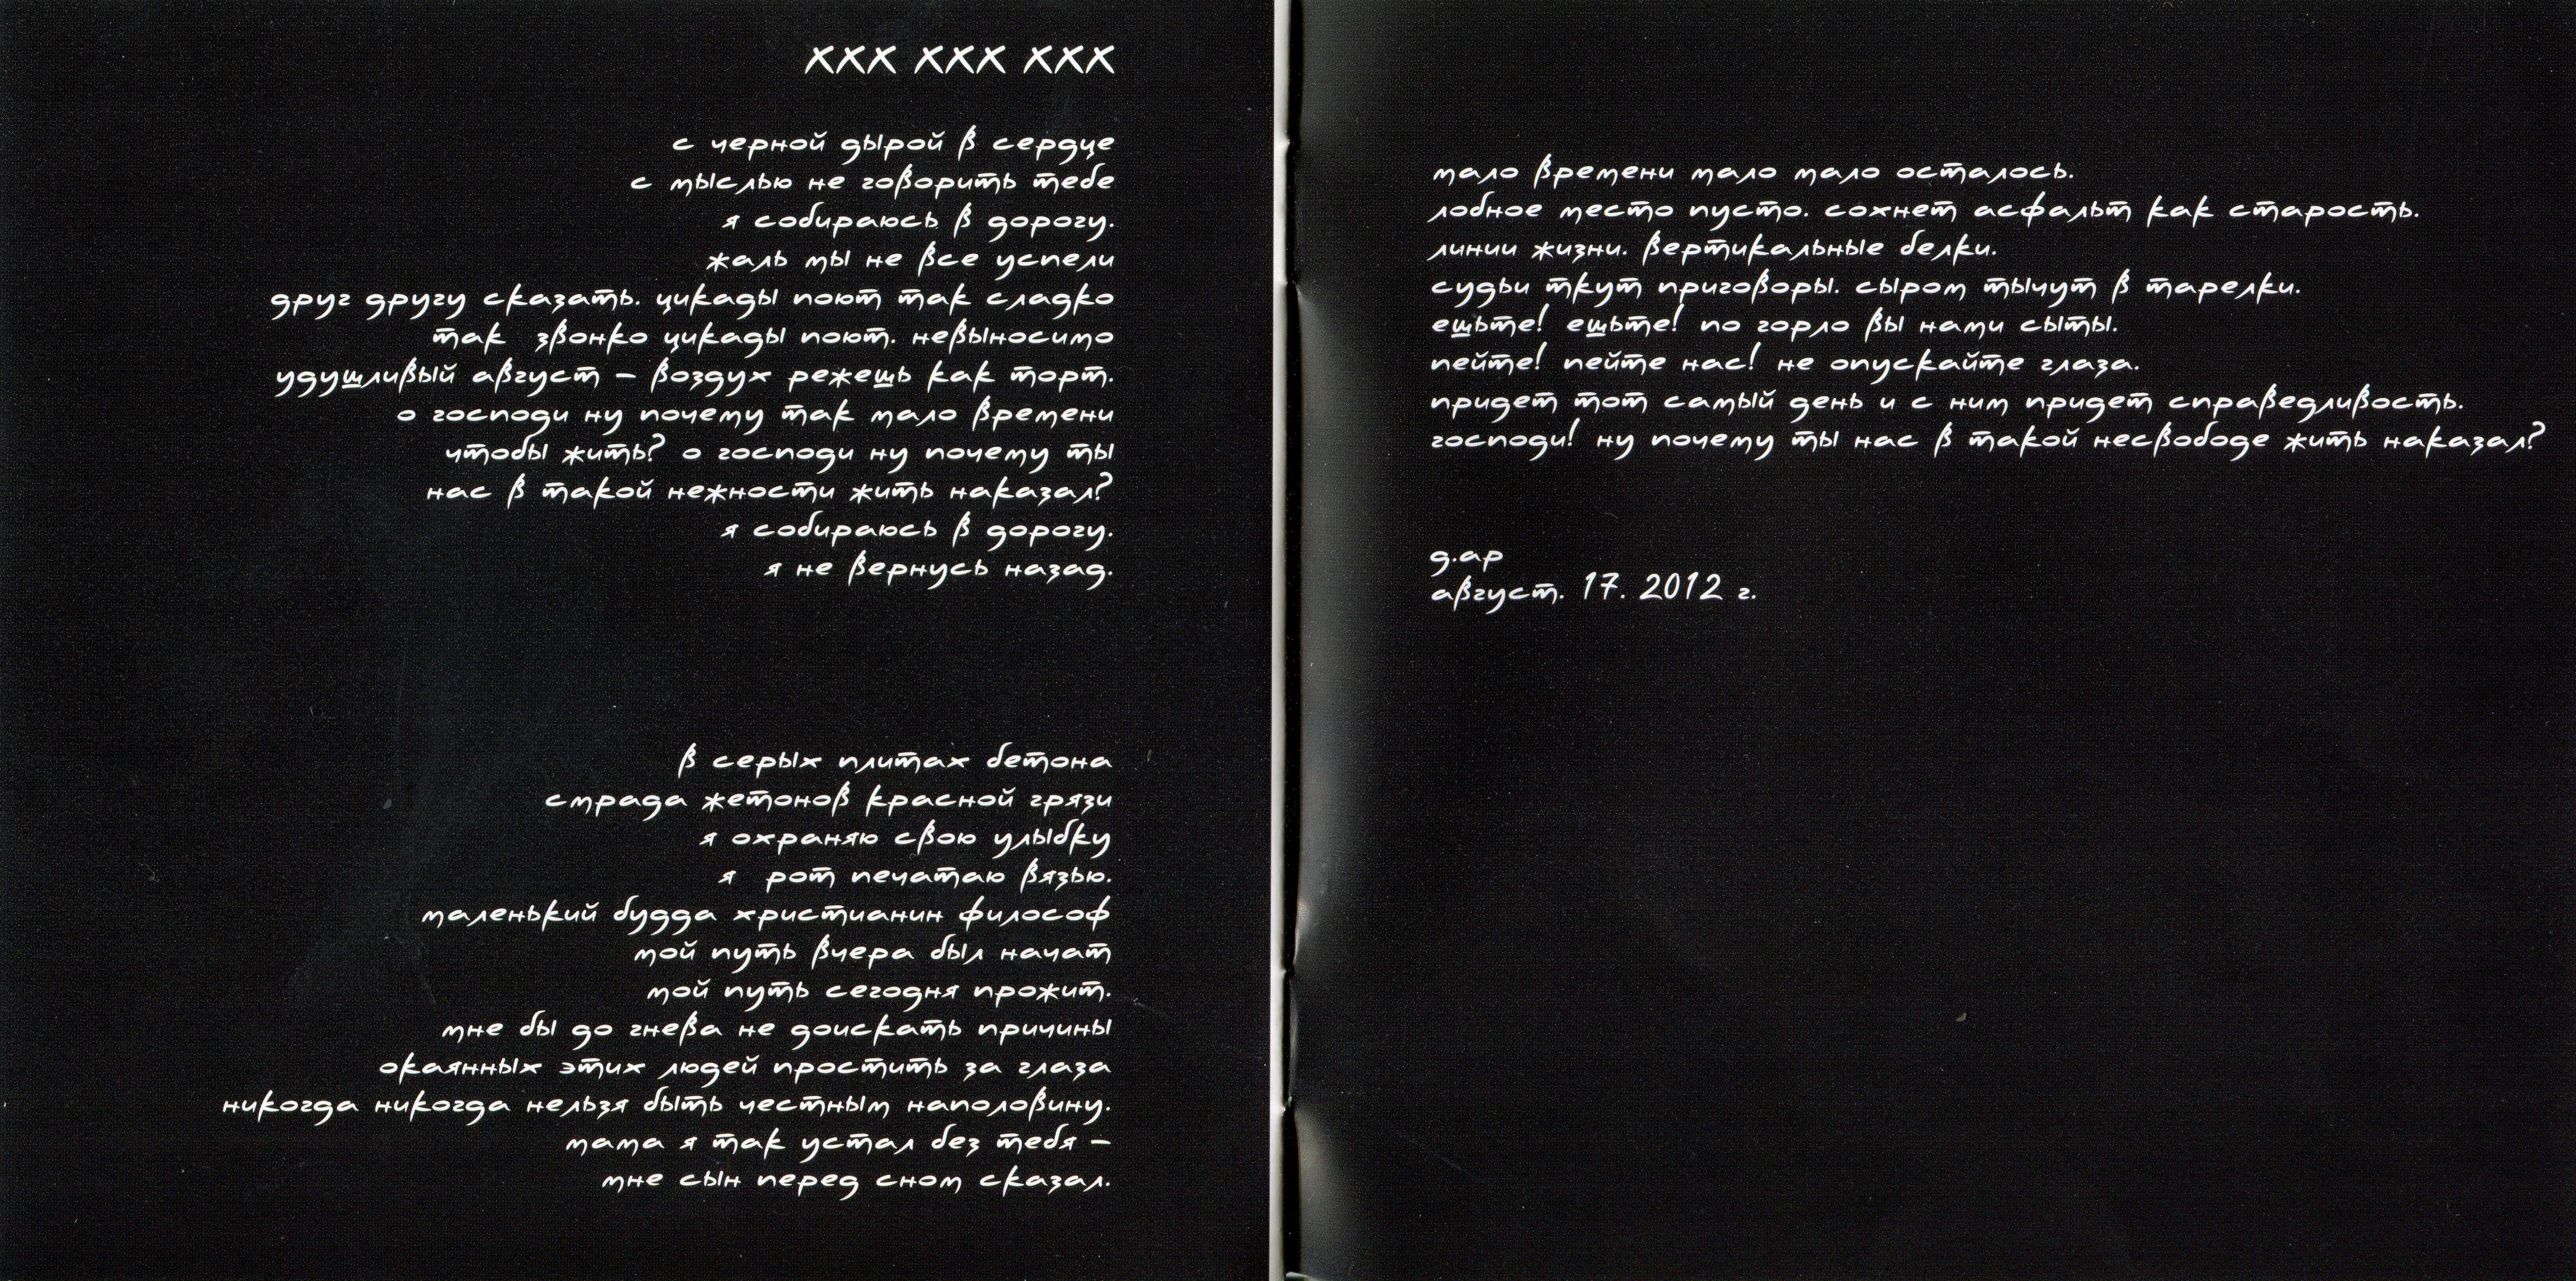 xxx xxx xxx
с черной дырой в сердце
с мыслью не говорить тебе
я собираюсь в дорогу.
жаль мы не все успели
друг другу сказать. цикады поют так сладко
так звонко цикады поют. невыносимо
удушливый август – воздух режешь как торт.
о господи ну почему так мало времени
чтобы жить? о господи ну почему ты
нас в такой нежности жить наказал?
я собираюсь в дорогу.
я не вернусь назад.
в серых плитах бетона
смрада жетонов красной грязи
я охраняю свою улыбку
я рот печатаю вязью.
маленький будда христианин философ
мой путь вчера был начат
мой путь сегодня прожит.
мне бы до гнева не доискать причины
окаянных этих людей простить за глаза
никогда никогда нельзя быть честным наполовину.
мама я так устал без тебя –
мне сын перед сном сказал.
мало времени мало мало осталось.
лобное место пусто. сохнет асфальт как старость.
линии жизни. вертикальные белки.
судьи ткут приговоры. сыром тычут в тарелки.
ешьте! ешьте! по горло вы нами сыты.
пейте! пейте нас! не опускайте глаза.
придет тот самый день и с ним придет справедливость.
господи! ну почему ты нас в такой несвободе жить наказал?
д.ар
август. 17. 2012 г.